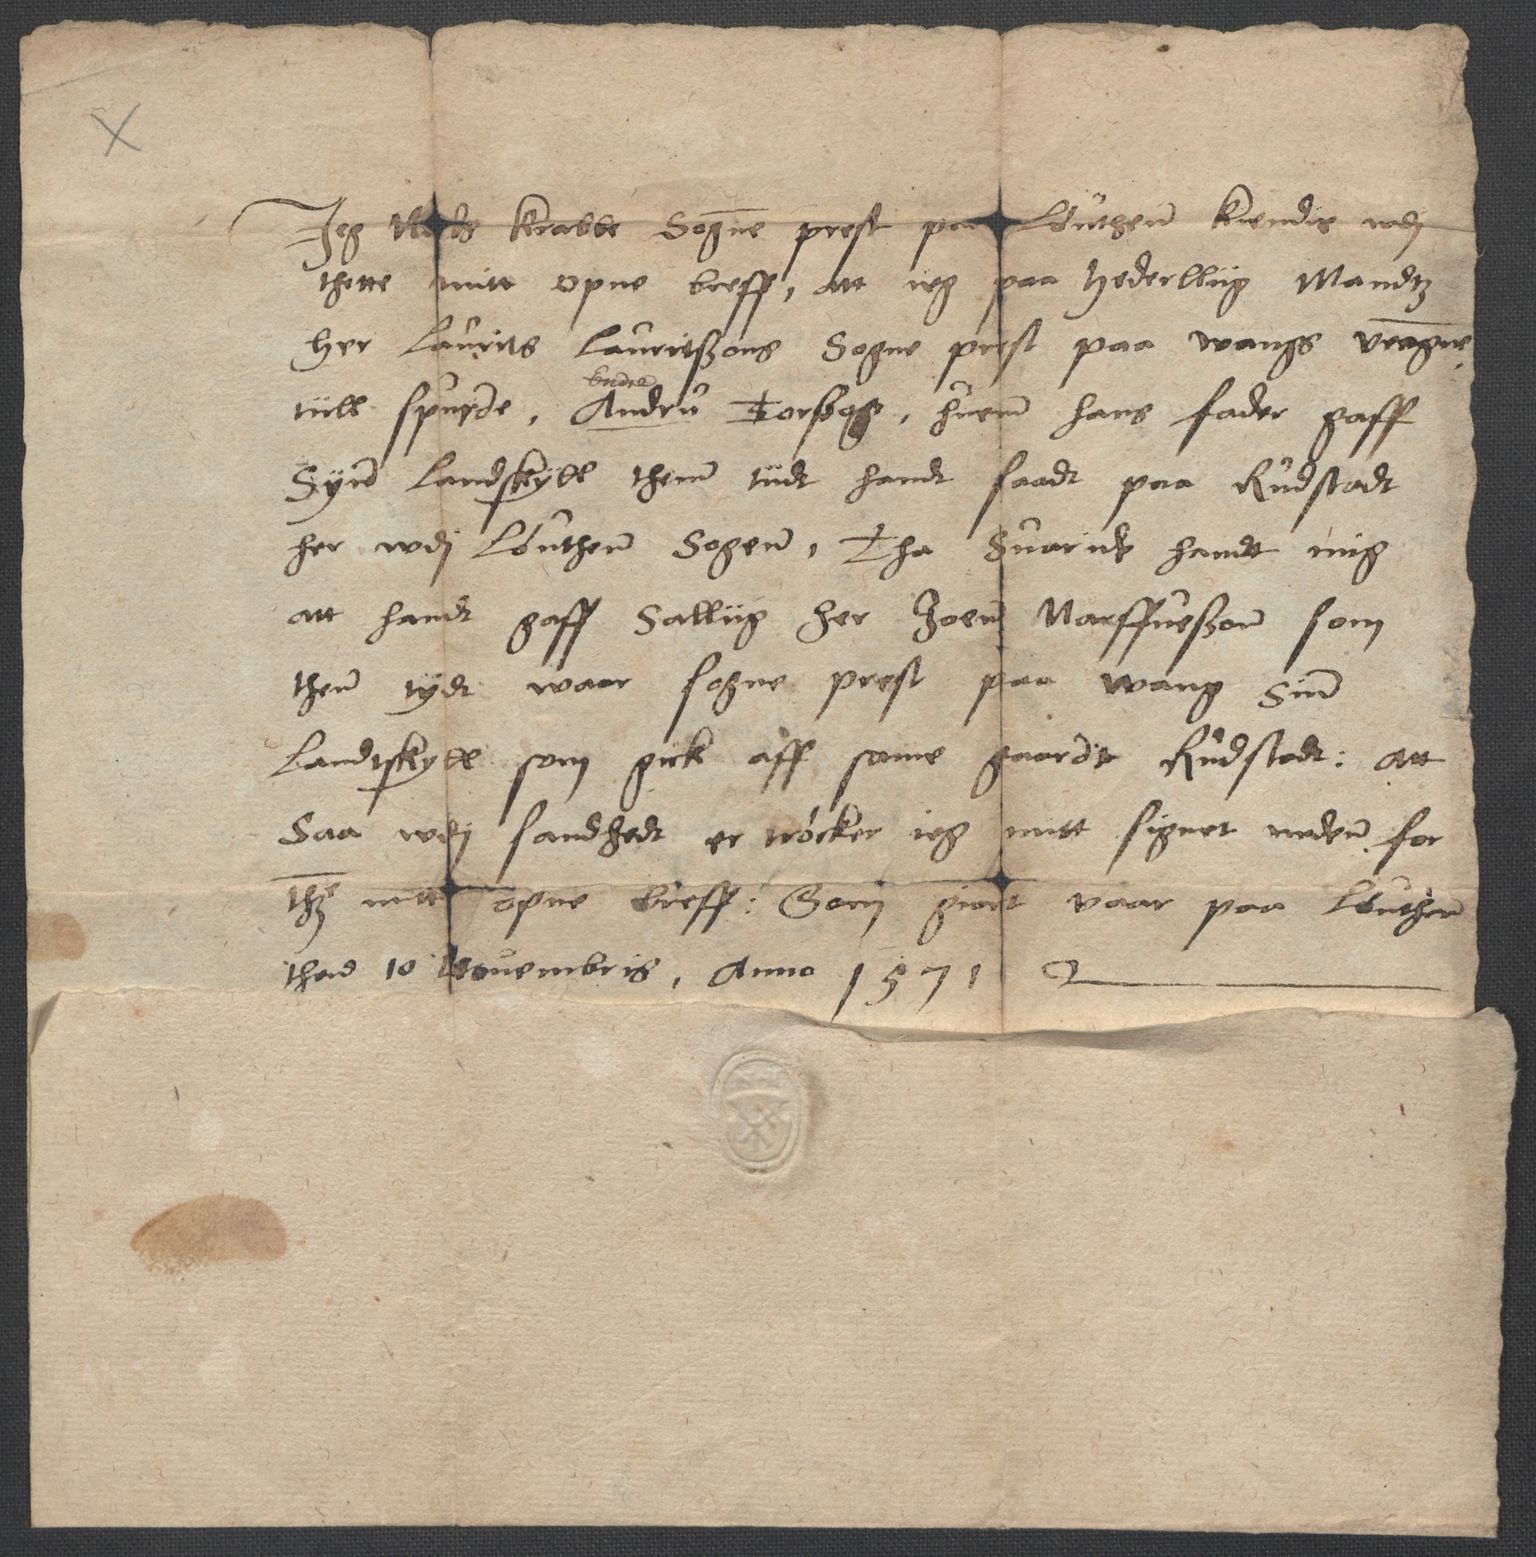 Jeg Mads krabbe Sogne prest paa Lðuthenn kiender vdj
thette mitt opne breff, att ieg paa hederlliig Mandtz
her Laurits Lauritßøns Sogne prest paa wangs vegne
tiill spurde, Andru Torßøn, huem hans fader gaff
Synd Landskyld them tiidt handt saadt paa Rudstadt
her wdj Lðuthenn Sogenn, Tha Suaride handt mig
att handt gaff Salliig her Joenn Narffueßønn som
thenn tydt waar sogne prest paa wang Sinn
Landtskyld som gick aff same gaardt Rudstadt: att
Saa wdj sandhedt er tròcker ieg mitt signet nedenn for
thз mitt opne breff: Som giort vaar paa Lðuthenn
thend 10 Nouembris, Anno 1571